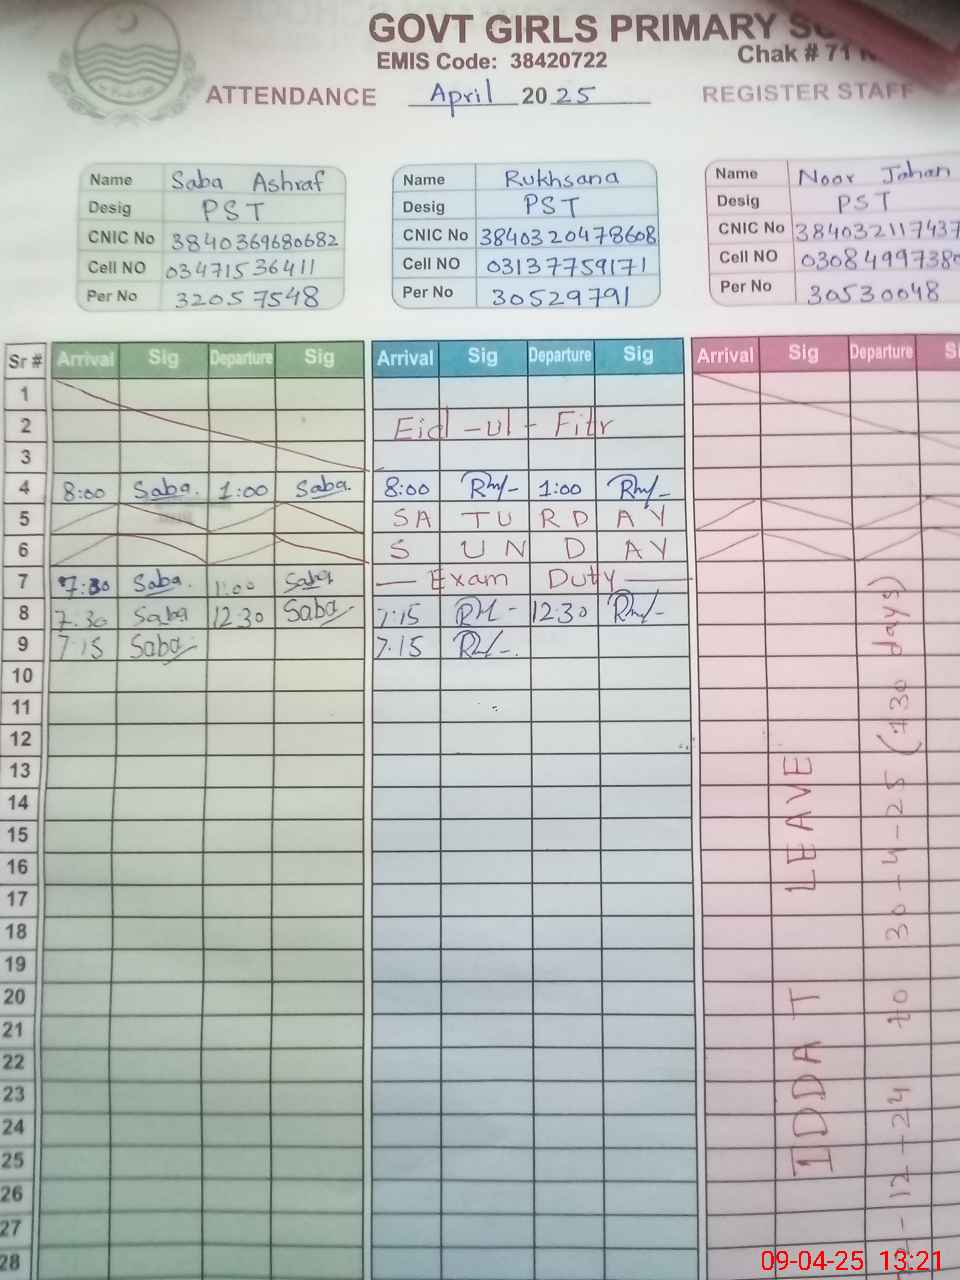 GOVT GIRLS PRIMARY
EMIS Code: 38420722
Chak # 71
ATTENDANCE April 2025 REGISTER STAFF
Name Saba Ashraf
Desig PST
CNIC No 3840369680682
Cell NO 03471536411
Per No 32057548
Name Rukhsana
Desig PST
CNIC No 3840320478608
Cell NO 03137759171
Per No 30529791
Name Noor Jahan
Desig PST
CNIC No 384032117437
Cell NO 030849973
Per No 30530048
Sr # Arrival Sig Departure Sig Arrival Sig Departure Sig Arrival Sig Departure
1
2 Eid-ul-Fitr
3
4 8:00 Saba. 1:00 Saba. 8:00 1:00
5 SATURDAY
6 SUNDAY
7 7:30 Saba. 1:00 Saba — Exam Duty —
8 7.30 Saba 12:30 Saba 7:15 12:30
9 7:15 Saba 7.15
10
11
12
13
14
15
16
17
18
19
20
21
22
23
24
25
26
27
28
IDDAT LEAVE
-12-24 to 30-4-25 (130 days)
09-04-25 13:21